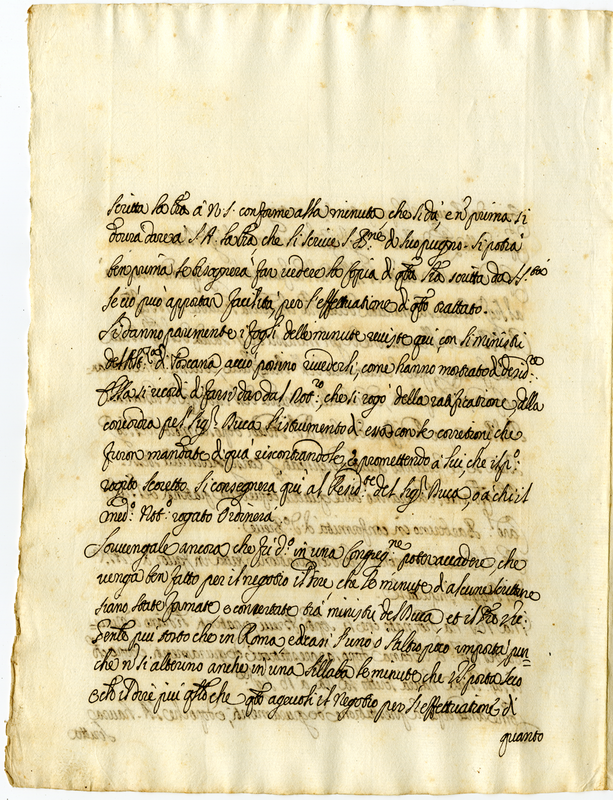 scritta la lra a N. S. conforme alla minuta che si dà, e nõ prima si
dourà dare à S. A. la lra che li scriue S. Sne di suo pugno. Si potrà
ben prima se bisognerà far uedere la copia di qta lra scritta da S. Stà
se ciò può apportar facilità per l'effettuatione di qto trattato.
Si danno parimente i fogli delle minute reuiste qui con li ministri
del di Toscana, acciò possino riuederli, come hanno mostrato desidrio.
Ella si ricordi di farsi dar dal Notro, che si rogò della ratificatione della
concordia pel Sigr Duca l'istrumento di essa con le correzioni che
furon mandate di qua riscontrandole, e promettendo à lui, che il po
rogito scorretto si consegnerà quì al Residte del Sigr Duca, ò à chi il
medo Noto rogato ordinerà.
Souuengale ancora che fù do in una Congregne poter accadere, che
uenga ben fatto per il negotio il dire che le minute d'alcune scritture
siano state formate e concertate trà ministri del Duca et il
più tosto che in Roma, ed essi l'uno o l'altro poco importa pur=
che nõ si alterino anche in una sillaba le minute che V. S. porta seco
e che il dire più qto che qto ageuoli il Negotio per l'effettuatione di
quanto